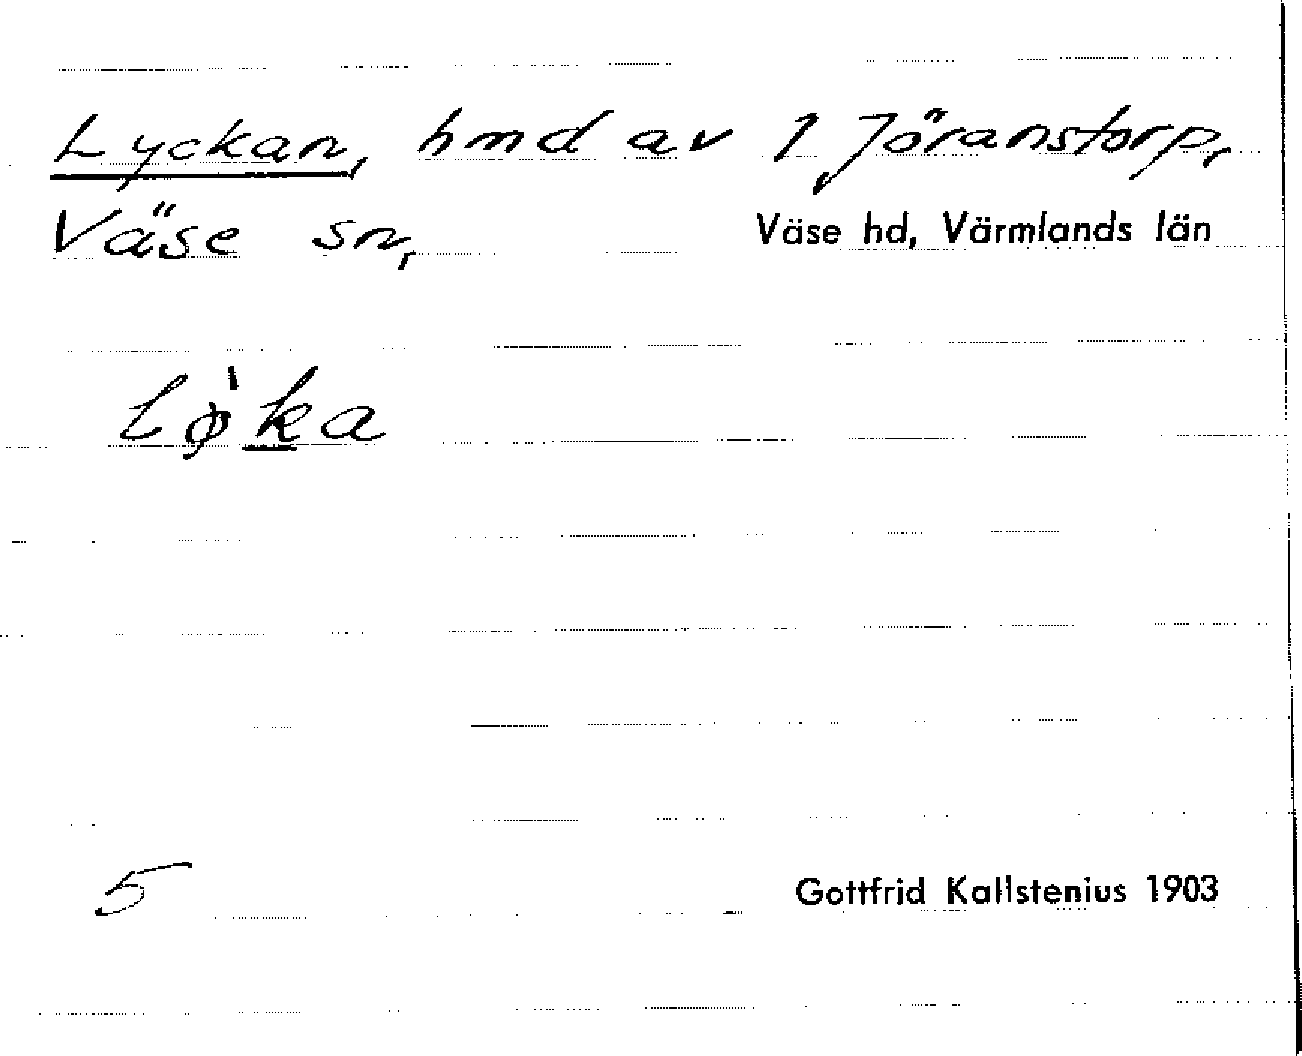 Lyckan, hmd av 1 Jöranstorp,
Väse sn, Väse hd, Värmlands län
Lø̀ka
5 Gottfrid Kallstenius 1903